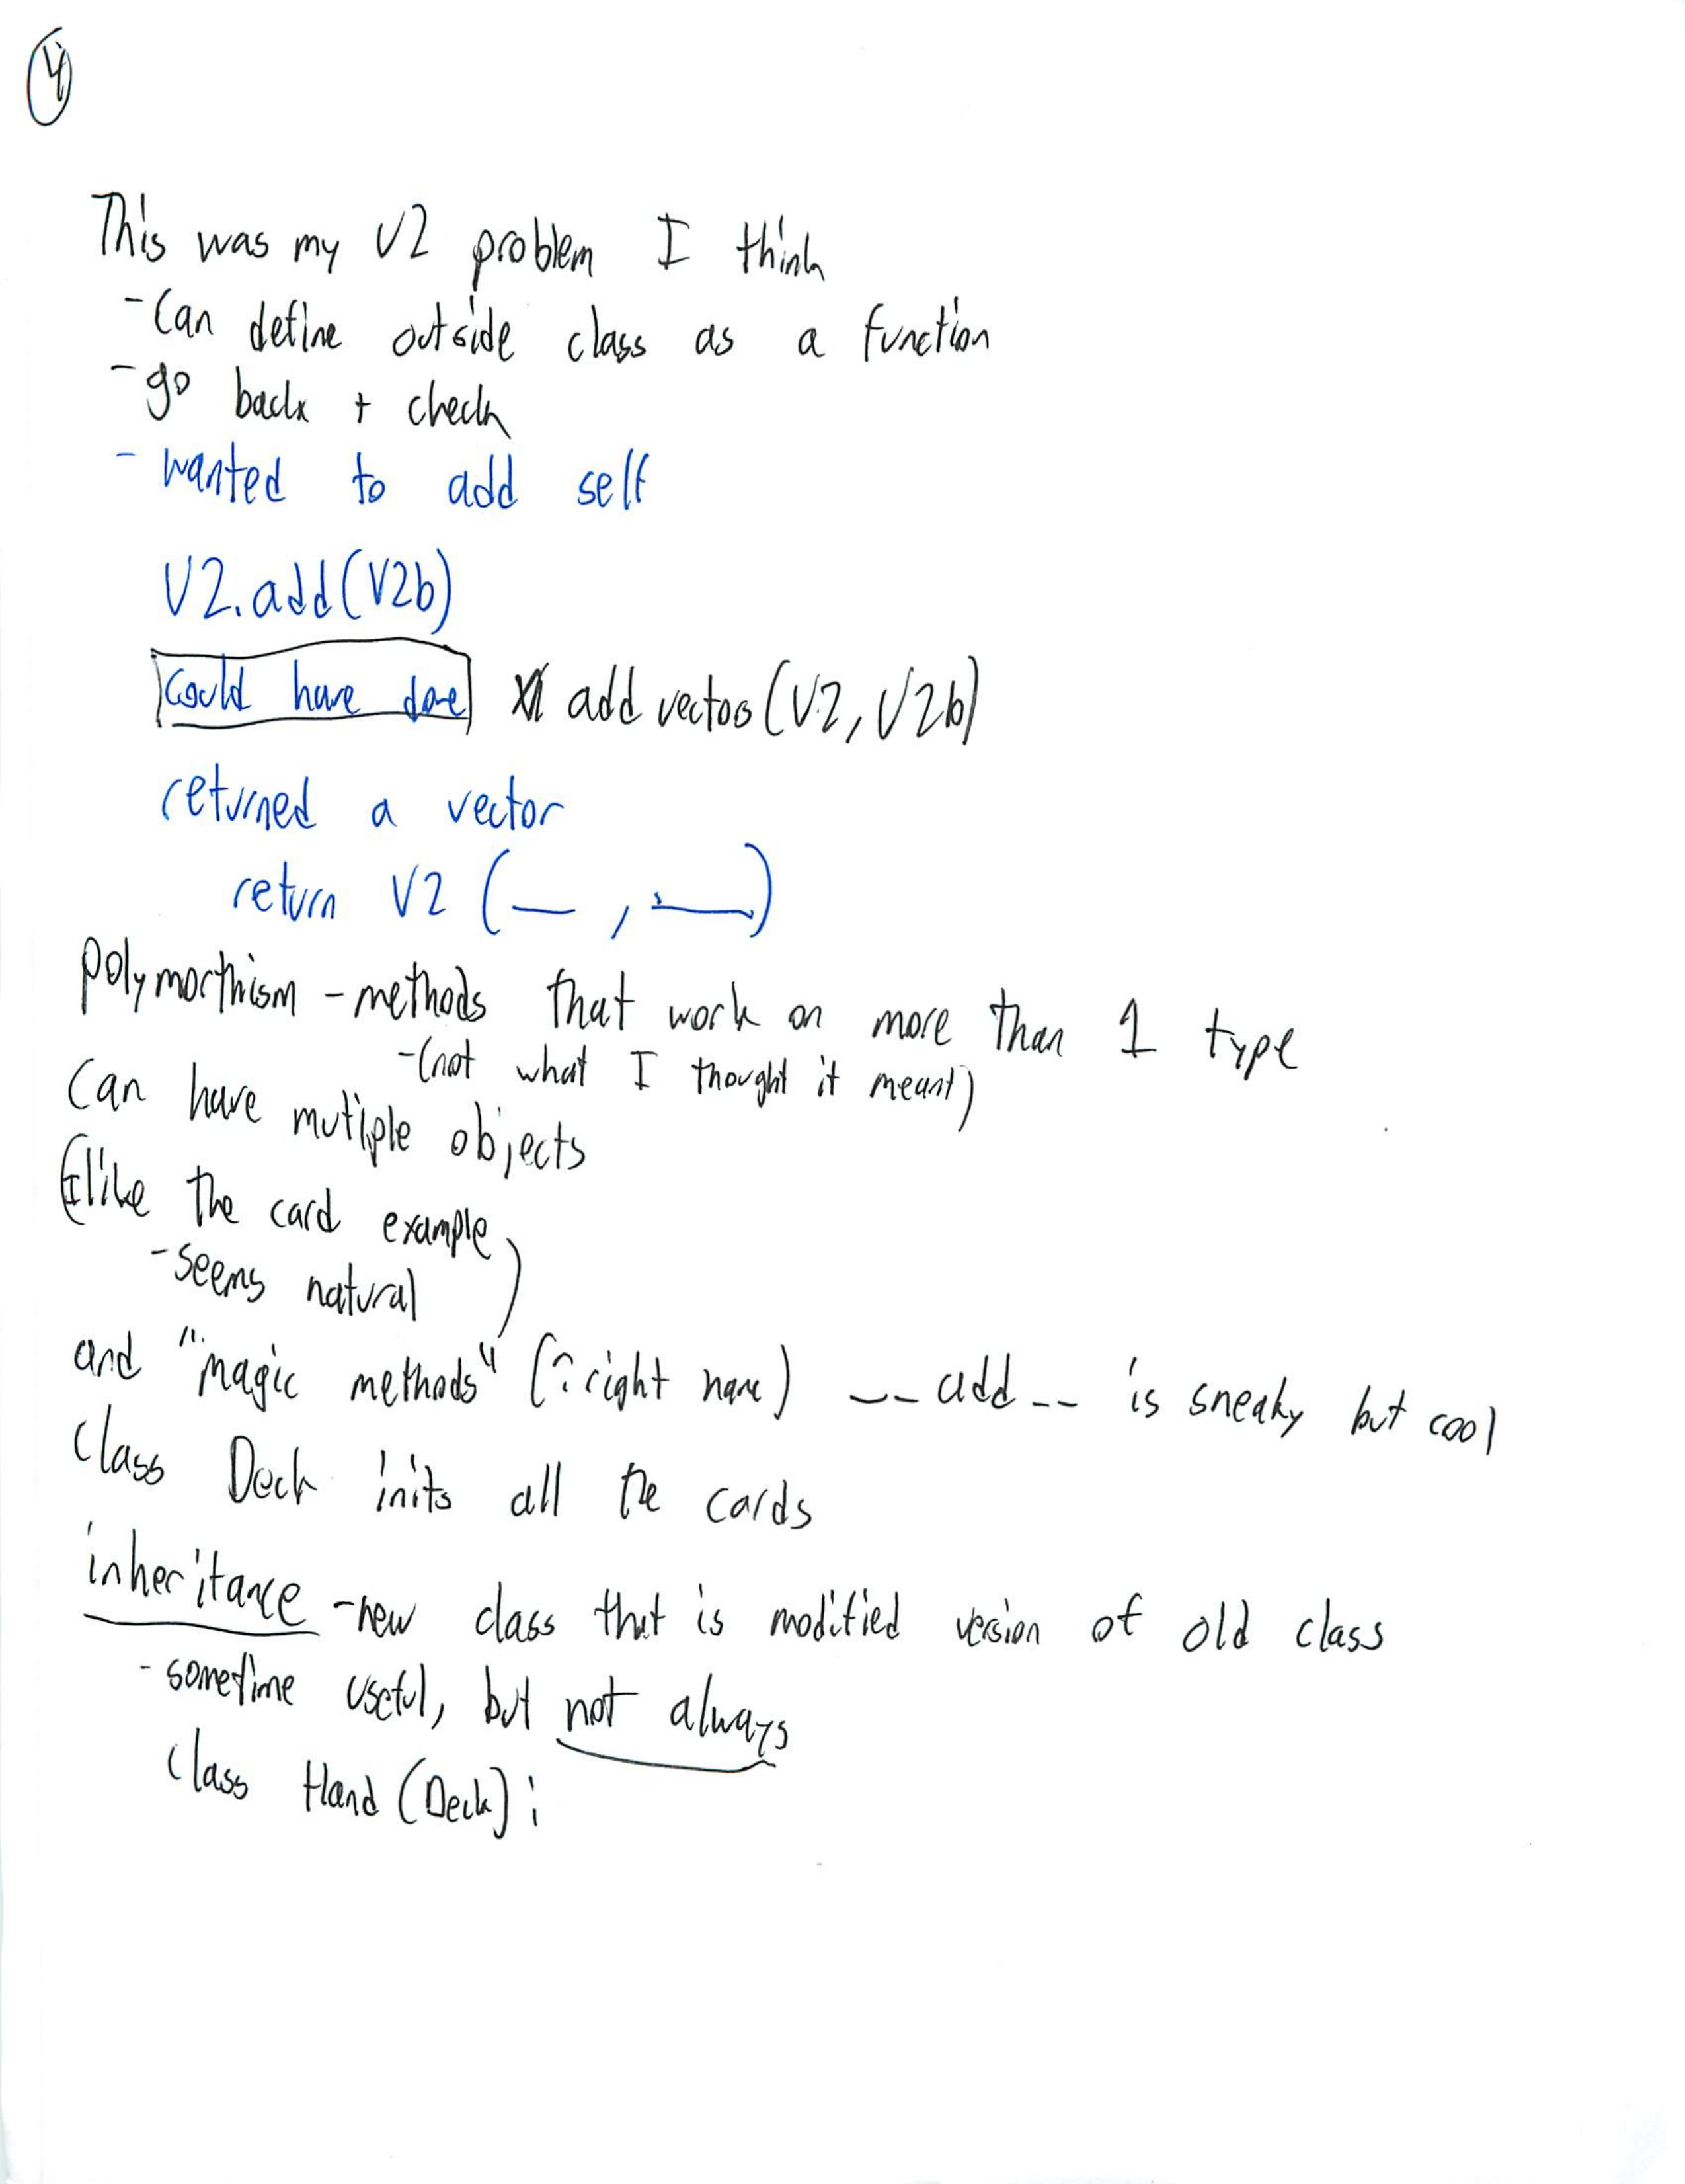 4
This was my V2 problem I think
- Can define outside class as a function
- go back + check
- wanted to add self
V2.add(V2b)
Could have done add vectos (V2, V2b)
returned a vector
return V2 (__, __)
polymorthism - methods that work on more than 1 type
-(not what I thought it meant)
Can have mutiple objects
(like the card example
- seems natural)
and "magic methods" (?right name) __add__ is sneaky but cool
Class Deck inits all the cards
inheritance - new class that is modified version of old class
- sometime useful, but not always
Class Hand (Deck):